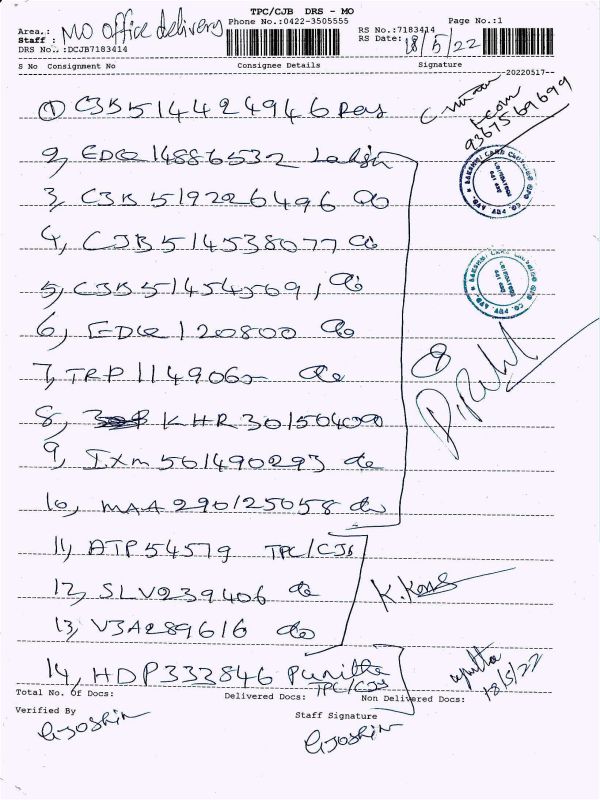 TPC/CJB DRS - MO
Area.: MO office delivery Phone No.:0422-3505555 RS No.:7183414 Page No.:1
Staff : RS Date: 18/5/22
DRS No.:DCJB7183414
S No Consignment No Consignee Details Signature
20220517
① CJB514424946
9367569699
2, EDQ 14886532
3, CJB 519226496 do
4, CJB 514538077 do
5, CJB 51454569 do
6, EDQ 120800 do
7, TRP 114906 do
⑧
8, KHR 301504090
9, IXM 561490293 do
10, MAA 290125058 do
11, ATP 54579 TPC/CJB
12, SLV239406 do
K.
13, V3A289616 do
14, HDP333846 Punitha
TPC/CJB
18/5/22
Total No. of Docs: Delivered Docs: Non Delivered Docs:
Verified By Staff Signature
G Joshin G Joshin